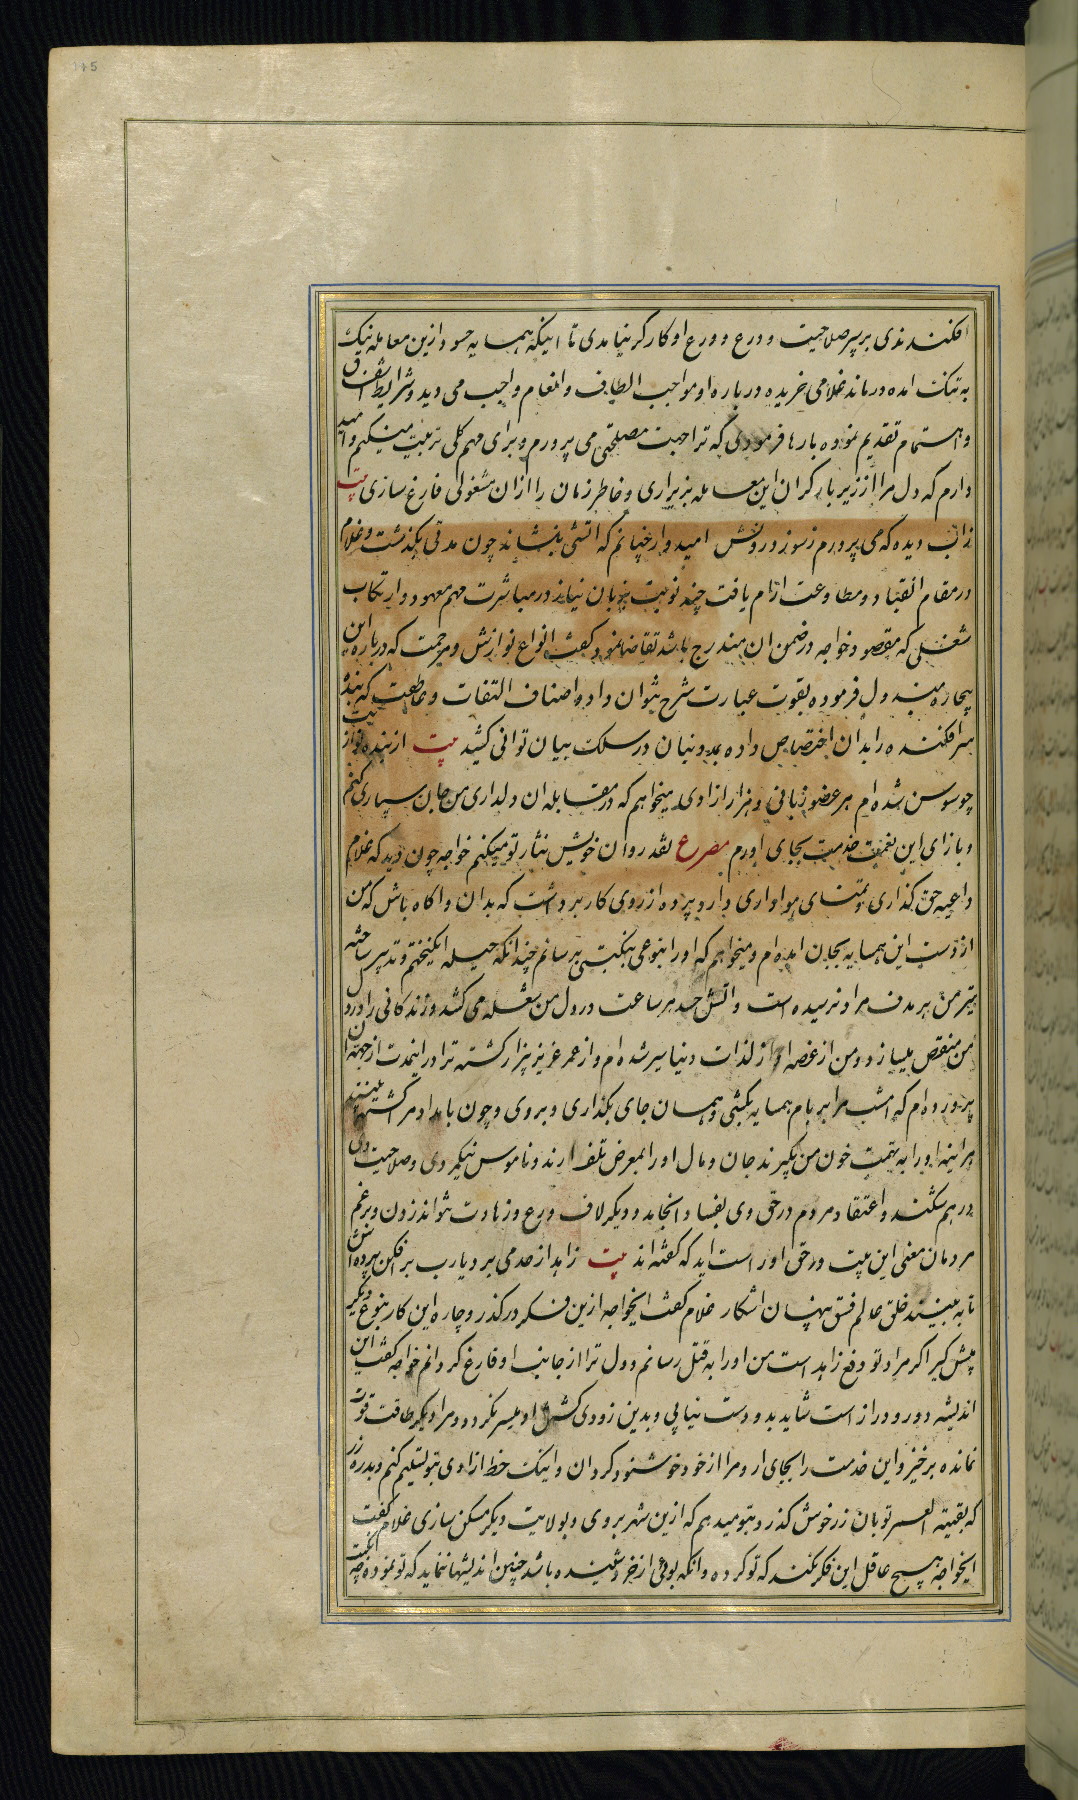 115
افکندندی بر سپر صلاحیت و ورع او کارگر نیامدی تا اینکه همسایه حسود ازین معامله نیک
به تنگ امده درماند غلامی خریده درباره او مواجب الطاف و انعام واجب می دید و شرایط اشفاق
و اهتمام تقدیم نموده بارها فرمودی که ترا جهت مصلحتی می پرورم و برای مهم کلی تربیت میکنم و امید
دارم که دل مرا از زیر بار گران این معامله بزیراری و خاطر زمان را ازان مشغولی فارغ سازی بیت
زاب دیده که می پرورم ز سوز درونش امیدوار چنانم که اتشی بنشاند چون مدتی بگذشت و غلام
در مقام انقیاد و مطاوعت ارام یافت چند نوبت بزبان نیاز در مباشرت مهم معهود و ارتکاب
شغلی که مقصود خواجه در ضمن ان مندرج باشد تقاضا نمود گفت انواع نوازش و مرحمت که درباره این
بیچاره مبذول فرموده بقوت عبارت شرح نتوان داد و اصناف التفات و عاطفت که بنده
سرافکنده را بدان اختصاص داده بمدد بنان در سلک بیان نتوانی کشید بیت از بنده نواز
چو سوسن شده ام هر عضو زبانی و هزار ازادی میخواهم که در مقابله ان دلداری من جان سپاری کنم
و بازای این نعمت خدمت بجای اورم مصرع نقد روان خویش نثار تو میکنم خواجه چون دید که غلام
داعیه حق گذاری و تمنای هواداری دارد پرده از روی کار برداشت که بدان و اگاه باش که من
از دست این همسایه بجان امده ام و میخواهم که او را بنوعی نکبتی برسانم چندانکه حیله انگیختم و تدبیر ساخته
تیر من بر هدف مراد نرسیده است و اتش حسد هر ساعت در دل من شعله می کشد و زندگانی را در
من منغص میسازد و من از غصه او از لذات دنیا سیر شده ام و از عمر عزیز بیزار گشته ترا در اینمدت از جهت ان
پرورده ام که امشب مرا بر بام همسایه بکشی و همان جای بگذاری و بروی و چون بامداد مرا کشته بینند
هراینه او را به تهمت خون من بگیرند جان و مال او را بمعرض تلف ارند و ناموس نیکمردی و صلاحیت وی
درهم شکند و اعتقاد مردم در حق وی بفساد انجامد و دیگر لاف ورع و زهادت نتواند زدن و بر رغم
مردمان معنی این بیت در حق او راست اید که گفته اند بیت زاهد از حد می برد یارب برافکن پرده اش
تا به بینند خلق عالم فسق پنهان اشکار غلام گفت ایخواجه ازین فکر درگذر و چاره این کار بنوع دیگر
پیش گیر اگر مراد تو دفع زاهد است من او را به قتل رسانم و دل ترا از جانب او فارغ گردانم خواجه گفت این
اندیشه دور و دراز است شاید بدو دست نیابی و بدین زودی کشتن او میسر نگردد و مرا دیگر طاقت و قوت
نمانده برخیز و این خدمت را بجای ار و مرا از خود خوشنود گردان و اینک خط ازادی بتو تسلیم کنم و بدره زر
که بقیته العمر تو بان زر خوش گذرد بتو میدهم که ازین شهر بروی و بولایت دیگر مسکن سازی غلام گفت
ایخواجه هیچ عاقل این فکر نکند که تو کرده و انکه بوئی از خرد شنیده باشد چنین اندیشها ننماید که تو نموده چه انکبت